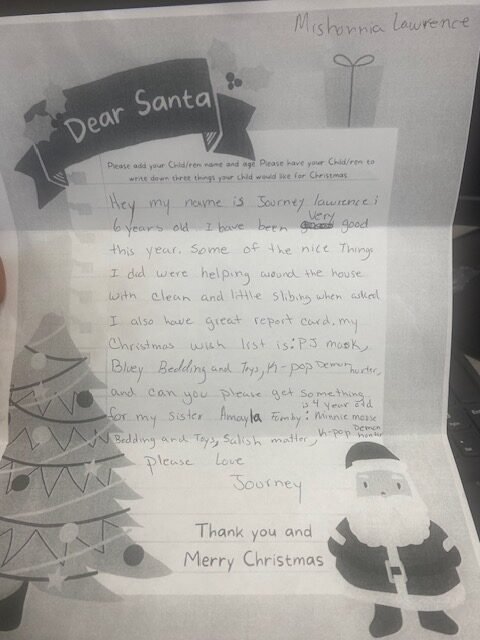 Mishonnia Lawrence
Dear Santa
Please add your Child/ren name and age. Please have your Child/ren to
write down three things your child would like for Christmas.
Hey my name is Journey lawrence i
6 years old. I have been very good
this year. Some of the nice Things
I did were helping around the house
with clean and little slibing when asked
I also have great report card. my
Christmas wish list is: PJ mask,
Bluey Bedding and Toys, K-pop Demon hunter,
and can you please get something
for my sister Amayla Fomby is 4 year old: Minnie mouse
Bedding and Toys, Salish matter, K-pop Demon hunter
please Love
Journey
Thank you and
Merry Christmas